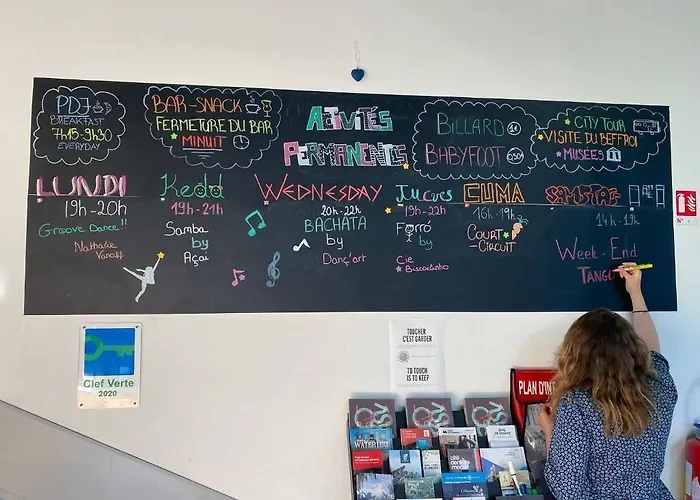 PDJ
BREAKFAST
7h15-9h30
EVERYDAY
BAR-SNACK
FERMETURE DU BAR
MINUIT
ACTIVITÉS
PERMANENTES
BILLARD 1€
BABYFOOT 0,50€
CITY TOUR
VISITE DU BEFFROI
MUSÉES
LUNDI
19h-20h
Groove Dance!!
Nathalie
Kedd
19h-21h
Samba
by
Açai
WEDNESDAY
20h-22h
BACHATA
by
Danç'art
Jueves
19h-22h
Forró
by
Cie
Biscoitinho
CUMA
16h-19h
COURT-
CIRCUIT
14h-19h
Week-End
TANGO
Clef Verte
2020
TOUCHER
C'EST GARDER
TO TOUCH
IS TO KEEP
PLAN D'IN